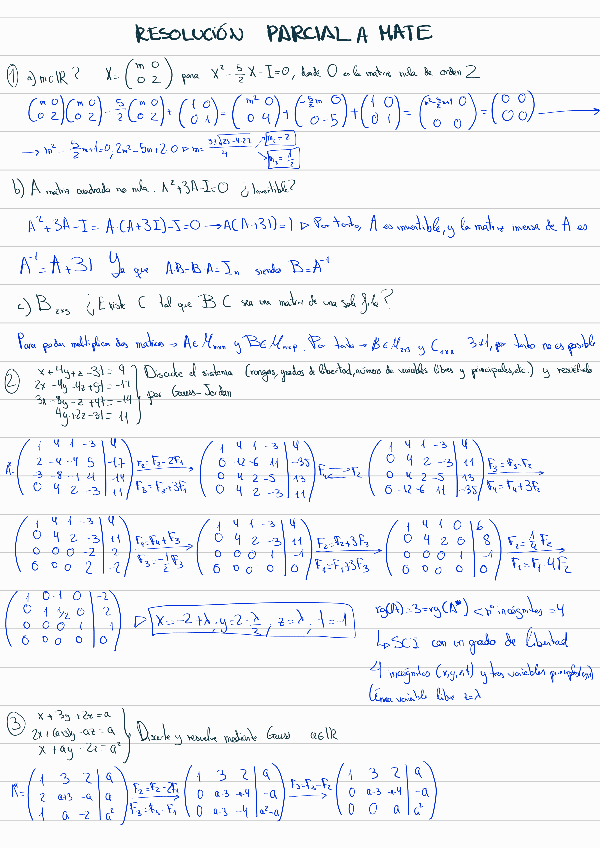 RESOLUCIÓN PARCIAL A MATE
① a) m∈ℝ? X=(m 0; 0 2) para X² - 5/2 X - I=0, donde O es la matriz nula de orden 2
(m 0; 0 2)(m 0; 0 2) - 5/2 (m 0; 0 2) + (1 0; 0 1) = (m² 0; 0 4) + (-5/2m 0; 0 -5) + (1 0; 0 1) = (m²-5/2m+1 0; 0 0) = (0 0; 0 0) →
→ m² - 5/2 m+1=0, 2m²-5m+2=0 ▷ m= 5±√25-4·2·2 / 4 m₁=2 m₂=1/2
b) A matriz cuadrada no nula. A²+3A-I=0 ¿Invertible?
A²+3A-I= A·(A+3I)-I=0 → A(A+3I)=I ▷ Por tanto, A es invertible, y la matriz inversa de A es
A⁻¹=A+3I Ya que AB=BA=Iₙ siendo B=A⁻¹
c) B₂ₓ₃ ¿Existe C tal que BC sea una matriz de una sola fila?
Para poder multiplicar dos matrices → A∈Mₘₓₙ y B∈Mₙₓₚ. Por tanto → B∈M₂ₓ₃ y C₁ₓₙ 3≠1, por tanto no es posible
② x+4y+z-3t=4
2x-4y-4z+5t=-17
3x-8y-z+4t=-14
4y+2z-3t=11
Discute el sistema (rangos, grados de libertad, número de variables libres y principales, etc.) y resuélvelo
por Gauss-Jordan
(1 4 1 -3 | 4; 2 -4 -4 5 | -17; -3 -8 -1 4 | -14; 0 4 2 -3 | 11) F₂=F₂-2F₁ F₃=F₃+3F₁ (1 4 1 -3 | 4; 0 -12 -6 11 | -35; 0 4 2 -5 | 13; 0 4 2 -3 | 11) F₄←→F₂ (1 4 1 -3 | 4; 0 4 2 -3 | 11; 0 4 2 -5 | 13; 0 -12 -6 11 | -35) F₃=F₃-F₂ F₄=F₄+3F₂
(1 4 1 -3 | 4; 0 4 2 -3 | 11; 0 0 0 -2 | 2; 0 0 0 2 | -2) F₄=F₄+F₃ F₃=-1/2F₃ (1 4 1 -3 | 4; 0 4 2 -3 | 11; 0 0 0 1 | -1; 0 0 0 0 | 0) F₂=F₂+3F₃ F₁=F₁+3F₃ (1 4 1 0 | 6; 0 4 2 0 | 8; 0 0 0 1 | -1; 0 0 0 0 | 0) F₂=1/4F₂ F₁=F₁-4F₂
(1 0 -1 0 | -2; 0 1 1/2 0 | 2; 0 0 0 1 | -1; 0 0 0 0 | 0) ▷ x=-2+λ, y=2-λ/2, z=λ, t=-1
rg(A)=3=rg(A*) < nº incógnitas =4
↳ SCI con un grado de libertad
4 incógnitas (x,y,z,t) y tres variables principales
(Una variable libre z=λ
③ x+3y+2z=a
x+ay-2z=a²
Discute y resuelve mediante Gauss a∈ℝ
(1 3 2 | a; 2 a+3 -a | a; 1 a -2 | a²) F₂=F₂-2F₁ F₃=F₃-F₁ (1 3 2 | a; 0 a-3 -a-4 | -a; 0 a-3 -4 | a²-a) F₃=F₃-F₂ (1 3 2 | a; 0 a-3 -a-4 | -a; 0 0 a | a²)